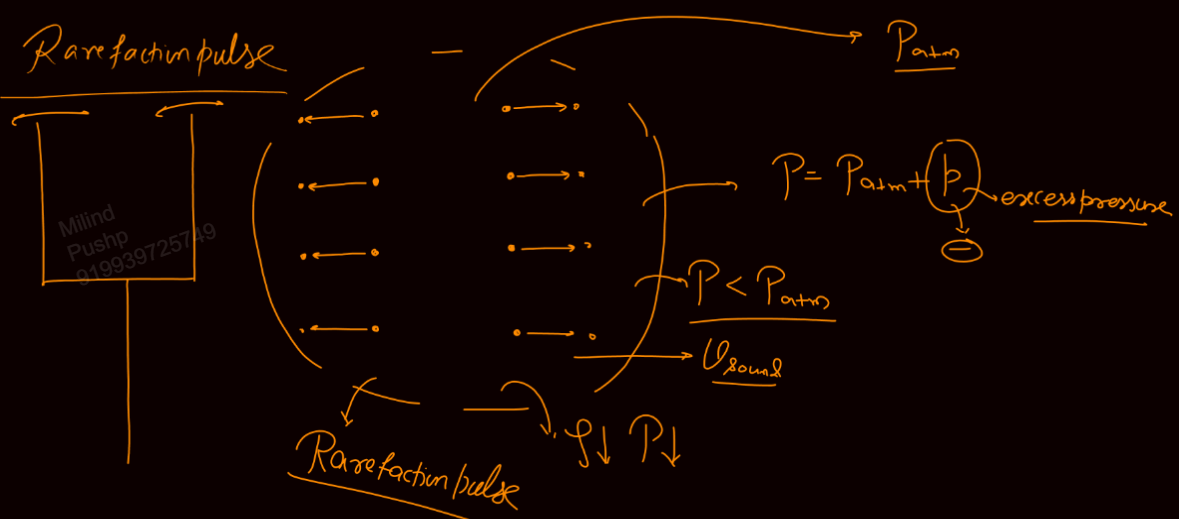 Rarefaction pulse
Patm
P = Patm + p
excess pressure
−
P < Patm
Vsound
ρ↓ P↓
Rarefaction pulse
Milind
Pushp
919939725749